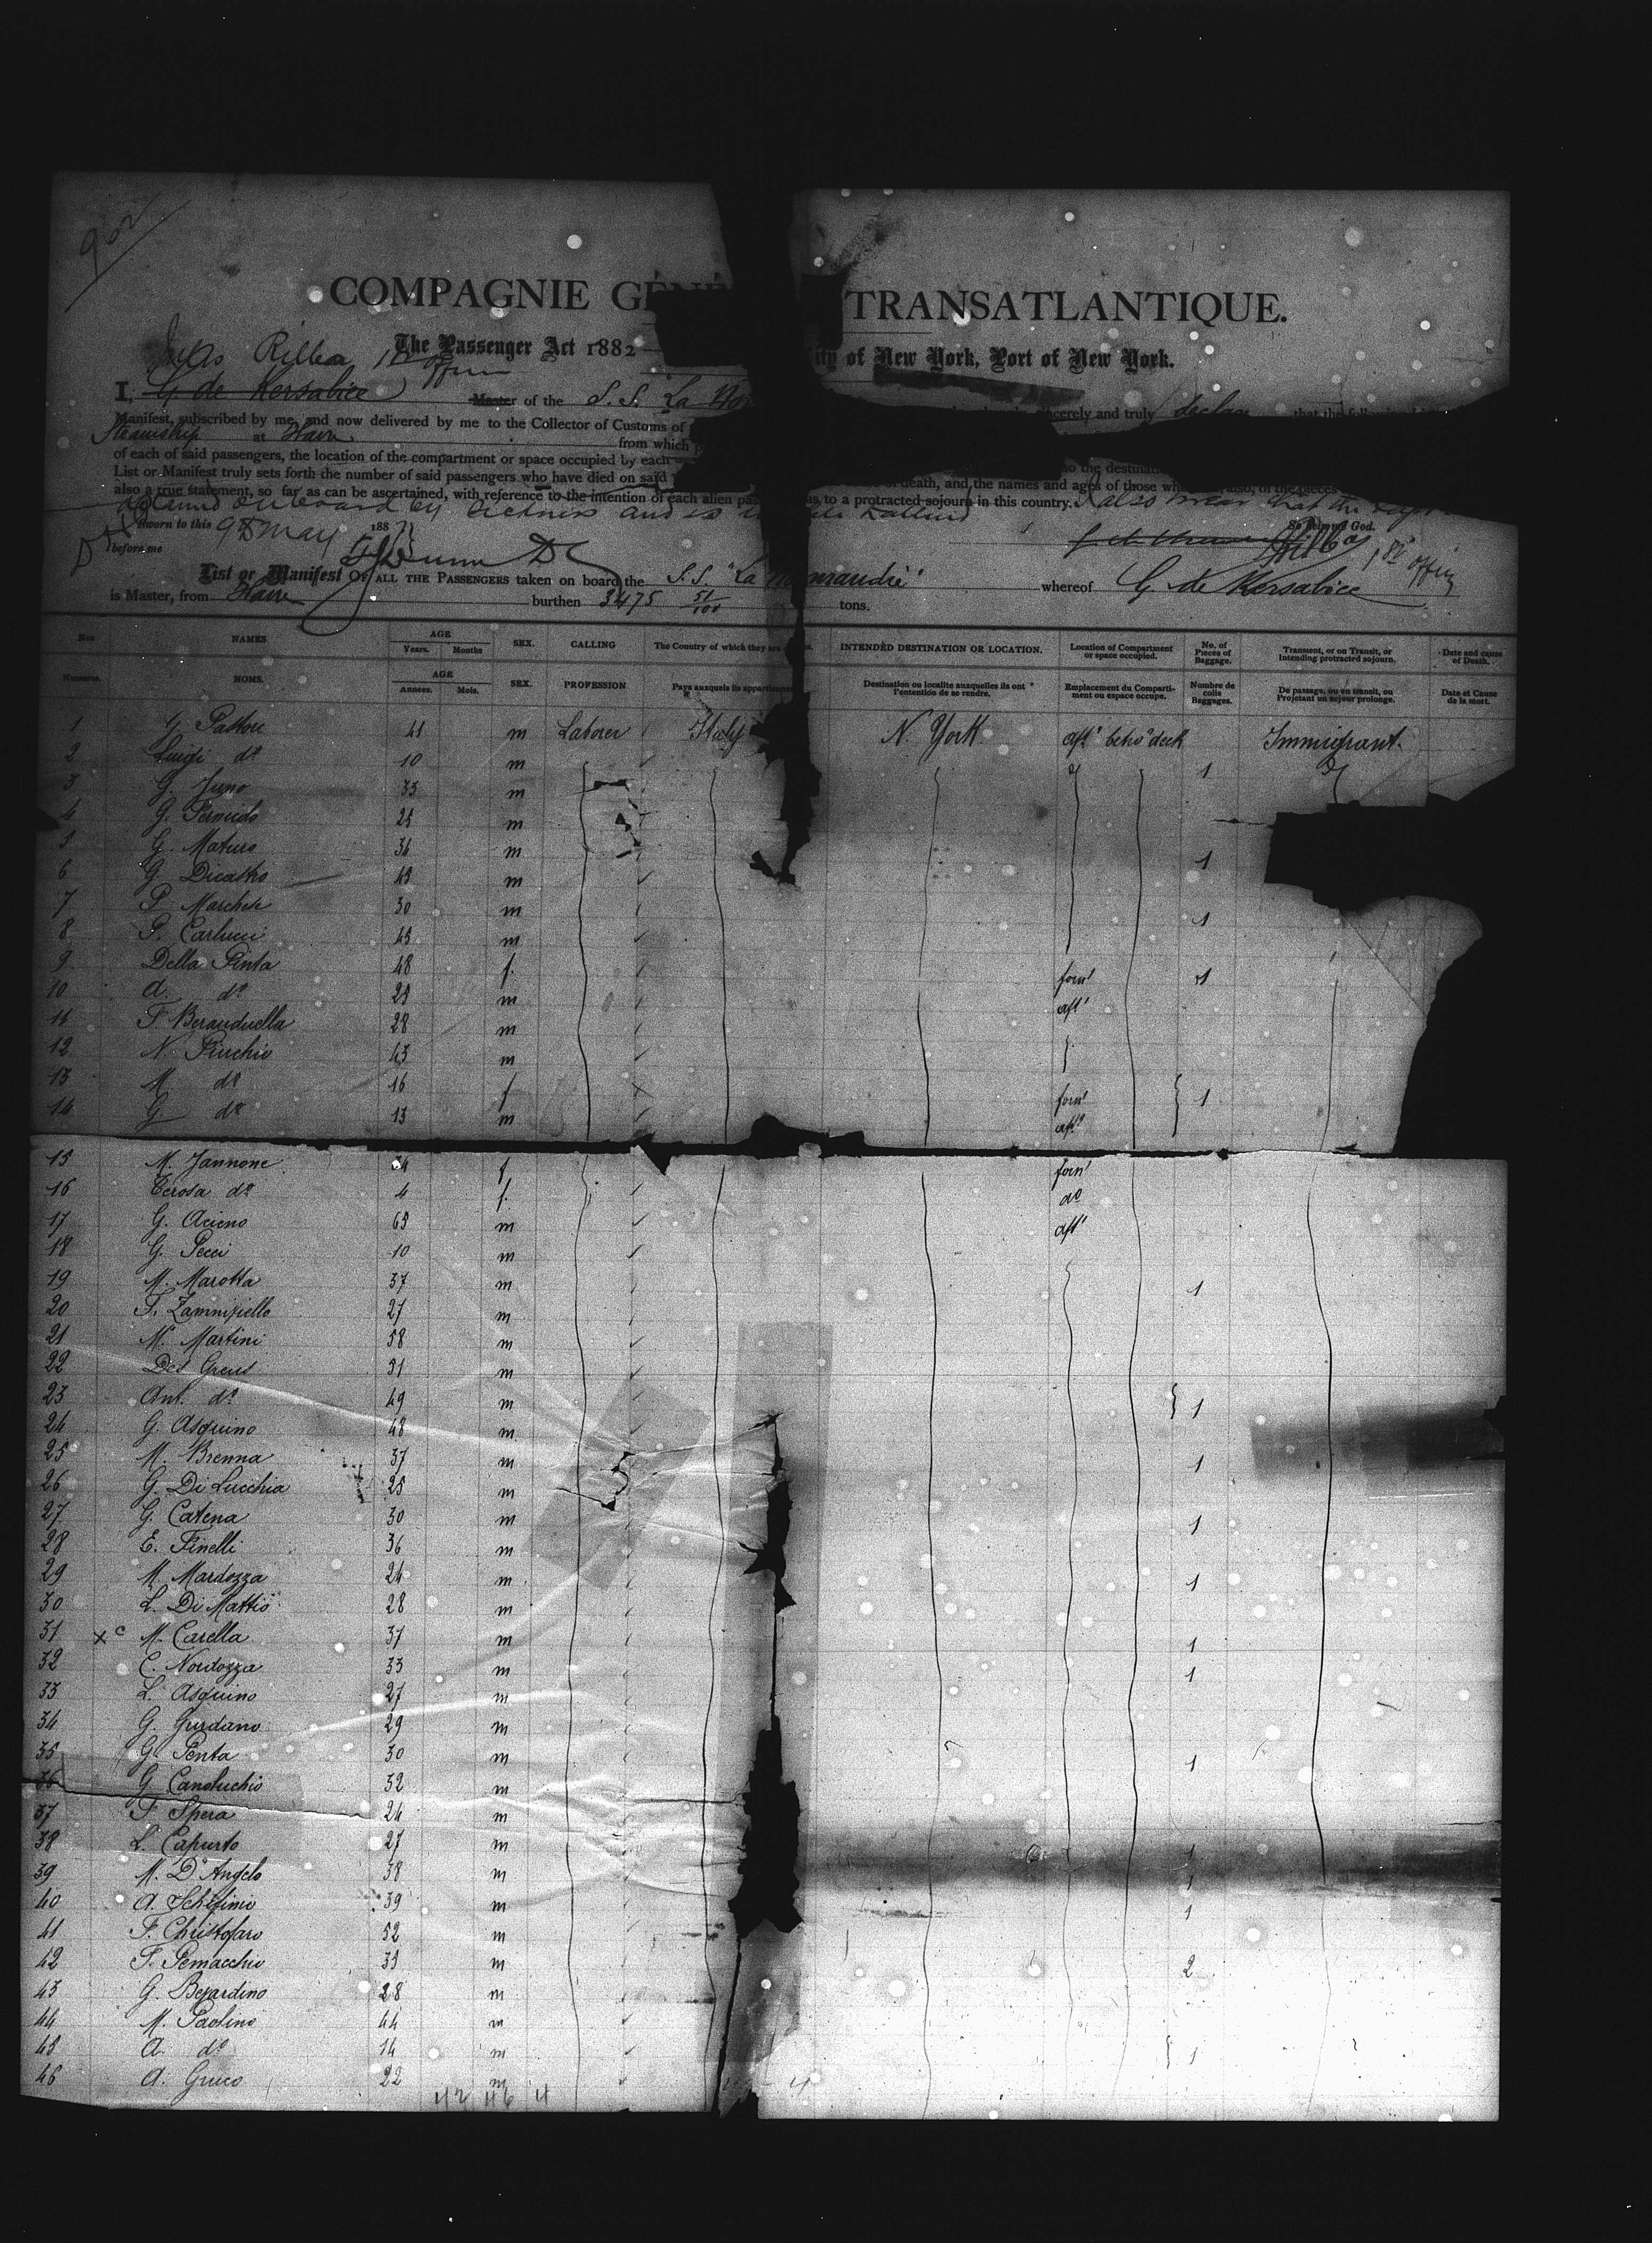 962
COMPAGNIE GÉNÉ TRANSATLANTIQUE.
The Passenger Act 1882 City of New York, Port of New York.
I, G. de Kersabiec Master of the S.S. "La Nor sincerely and truly declare that the following
Manifest, subscribed by me, and now delivered by me to the Collector of Customs of
Steamship at Havre from which
of each of said passengers, the location of the compartment or space occupied by each so the destinat
List or Manifest truly sets forth the number of said passengers who have died on said of death, and the names and ages of those who also, of the pieces
also a true statement, so far as can be ascertained, with reference to the intention of each alien pas as to a protracted sojourn in this country. I also swear that the
detained on board by sickness and is
Sworn to this 9th May 1887 So help me God.
before me
List or Manifest OF ALL THE PASSENGERS taken on board the S.S. "La Normandie" whereof G. de Kersabiec
is Master, from Havre burthen 3475 51/100 tons.
Nos NAMES AGE Years. Months SEX. CALLING The Country of which they are INTENDED DESTINATION OR LOCATION. Location of Compartment or space occupied. No. of Pieces of Baggage. Transient, or on Transit, or Intending protracted sojourn. Date and cause of Death.
Numeros. NOMS. AGE Annees. Mois. SEX. PROFESSION Pays auxquels ils appartiennent Destination ou localite auxquelles ils ont l'entention de se rendre. Emplacement du Comparti-ment ou espace occupe. Nombre de colis Bagages. De passage, ou en transit, ou Projetant un sejour prolonge. Date et Cause de la mort.
1 G. Pastore 41 m Laborer Italy N. York aft betw deck Immigrant
2 Luigi do 10 m 1
3 G. Juno 33 m
4 G. 25 m
5 G. Maturo 36 m 1
6 G. Dicastro 45 m
7 P. Marchese 30 m 1
8 P. Carlucci 45 m
9 Della Penta 48 f. forw' 1
10 A. do 25 m aft'
11 F. Beranduella 28 m
12 N. Piuchio 43 m
13 M. do 16 f forw' 1
14 G. do 13 m aft'
15 M. Jannone 34 f forw'
16 Cerosa do 4 f. do
17 G. Acieno 65 m aft'
18 G. Pecci 10 m
19 M. Marotta 37 m 1
20 F. Zamnipiello 27 m
21 N. Martini 58 m
22 Del Greco 51 m
23 Ant. do 49 m 1
24 G. Asquino 48 m
25 M. Brenna 37 m 1
26 G. Di Lucchia 25 m
27 G. Catena 30 m 1
28 E. Finelli 36 m
29 M. Mardozza 24 m 1
30 L. Di Mattio 28 m
31 x c M. Carella 37 m 1
32 C. Nordozza 33 m 1
33 L. Asquino 27 m
34 G. Gurdano 29 m
35 G. Penta 30 m 1
36 G. Canoluchio 32 m
37 F. Spera 24 m
38 L. Capurto 27 m 1
39 M. D'Angelo 38 m 1
40 A. Schifinio 39 m 1
41 F. Christofaro 52 m
42 F. Pemacchio 35 m 2
43 G. Bejardino 28 m
44 M. Paolino 44 m
45 A. do 14 m 1
46 A. Greco 22 m
42 46 4 4